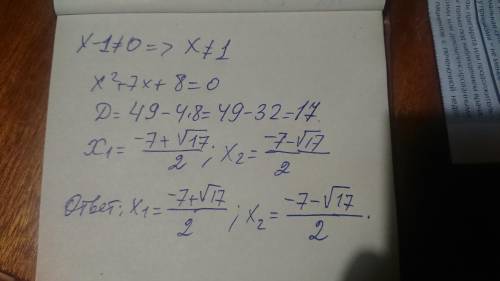 x-1≠0 => x≠1
x²+7x+8=0
D=49-4·8=49-32=17.
x₁=(-7+√17)/2; x₂=(-7-√17)/2
Ответ: x₁=(-7+√17)/2; x₂=(-7-√17)/2.